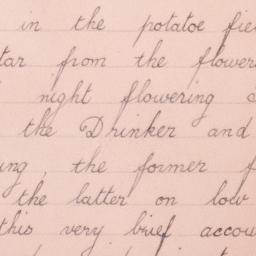 in the potatoe fie
tar from the flower
night flowering
the Drinker and
ing, the former f
the latter on low
this very brief accou